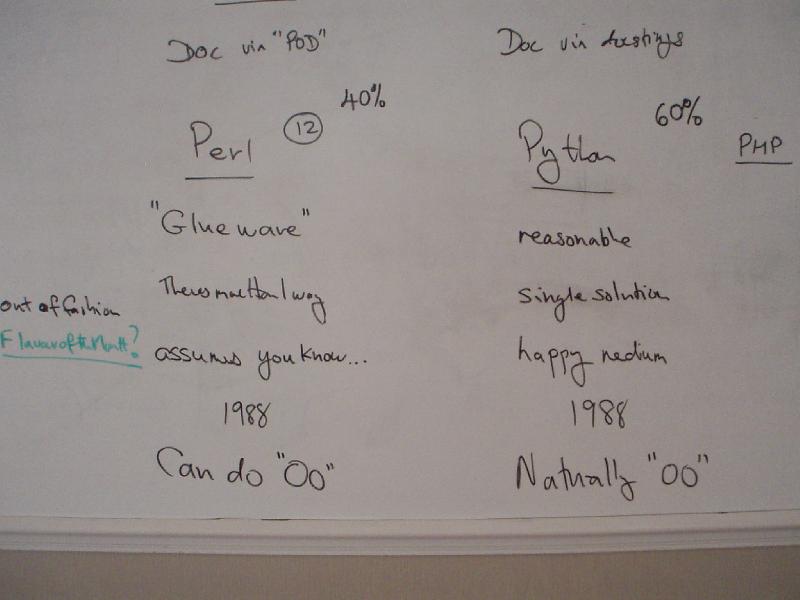 Doc via "POD"
Doc via
40%
60%
Perl 12
Python
PHP
"Glueware"
reasonable
Theres more than 1 way
single solution
out of fashion
Flavour of the Month?
assumes you know...
happy medium
1988
1988
Can do "OO"
Naturally "OO"